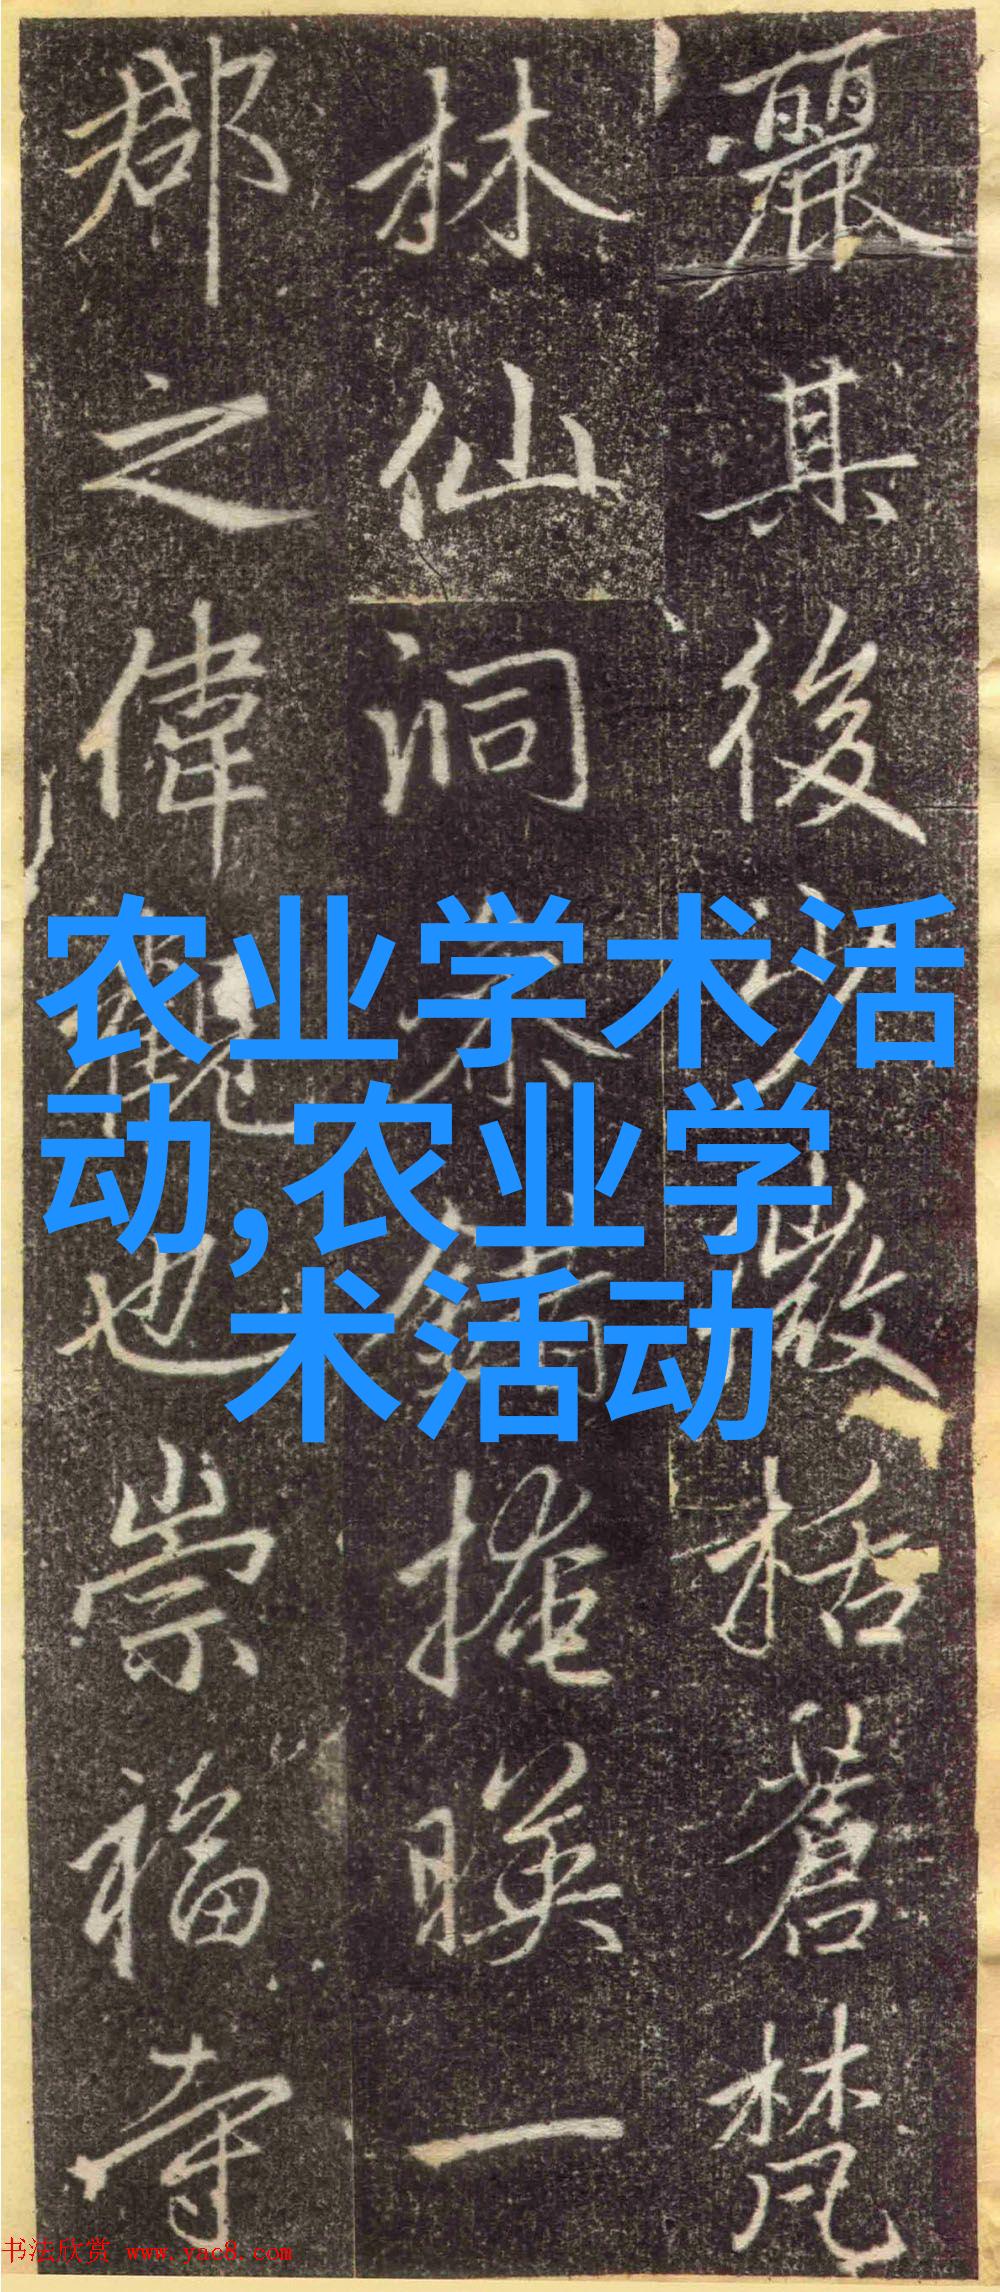 麗其後功嚴栝蒼梵
林仙洞奈錡掩暎一
郡之偉觀也崇福寺
农业学术活
动,农业学
术活动
书法欣赏 www.yac8.com